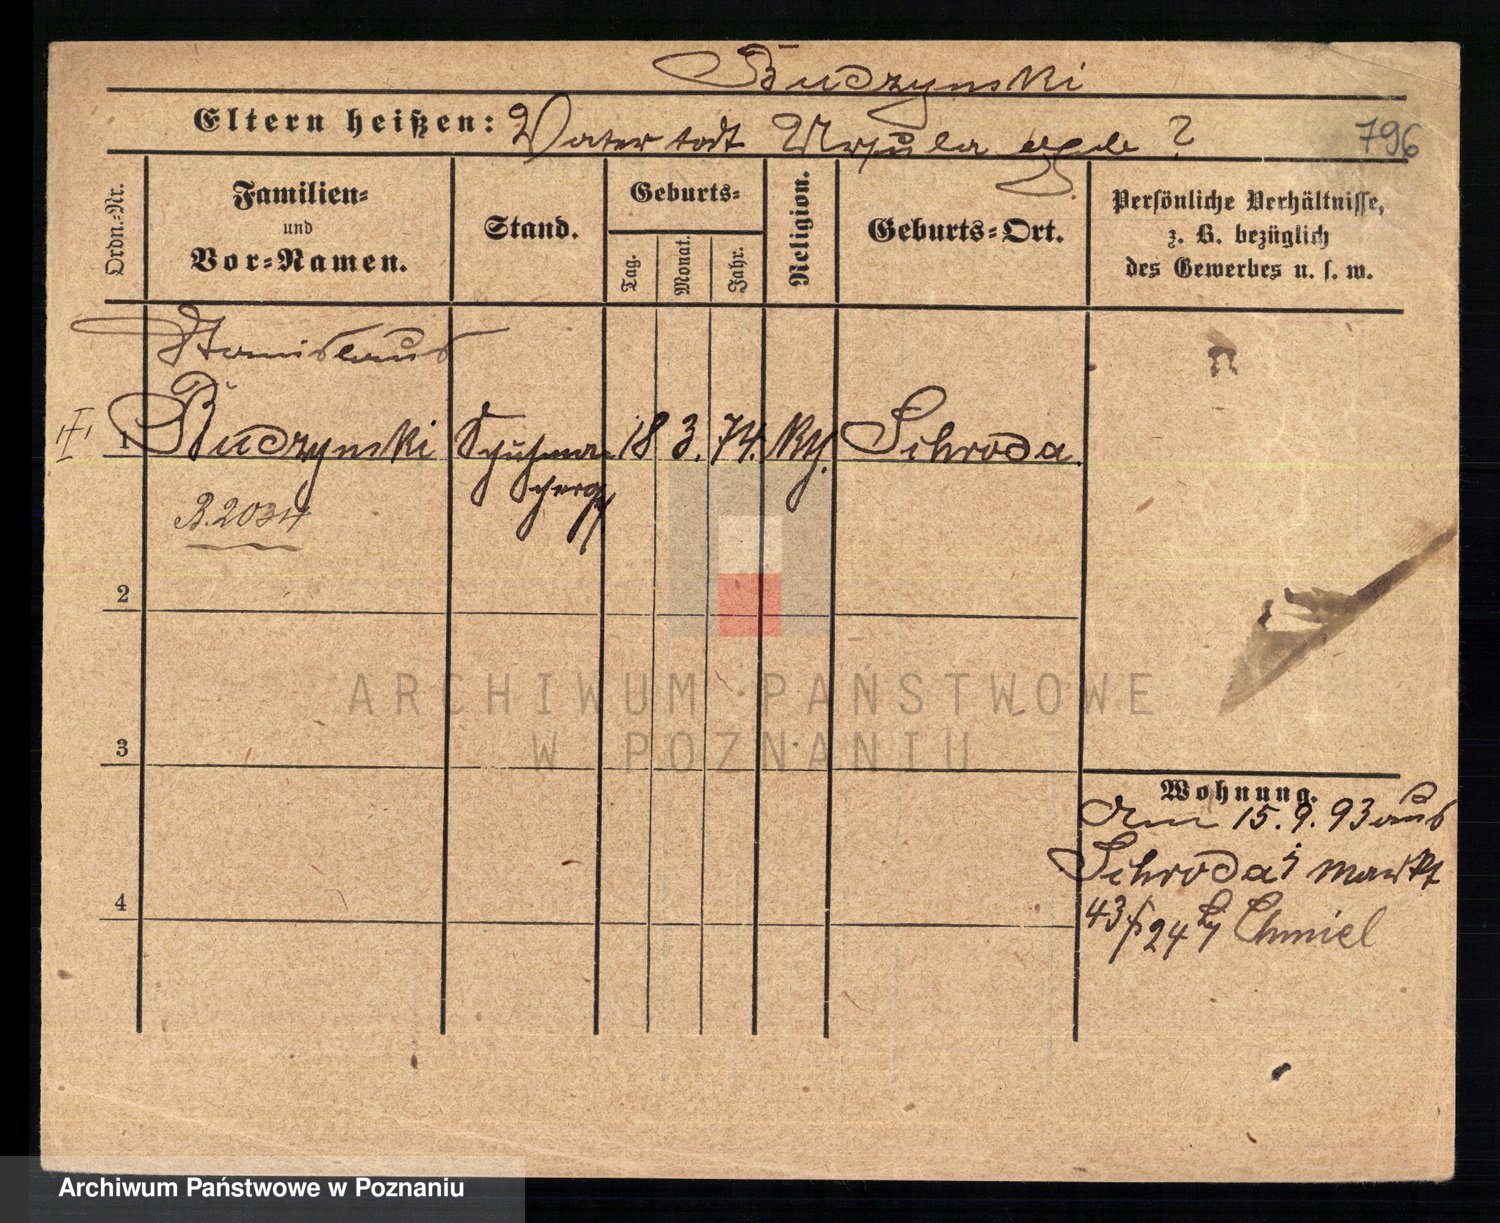 Budzynski
Eltern heißen: Vater todt Ursula geb ?
796
Ordn.-Nr.
Familien-
und
Vor-Namen.
Stand.
Geburts-
Tag.
Monat.
Jahr.
Religion.
Geburts-Ort.
Persönliche Verhältnisse,
z. B. bezüglich
des Gewerbes u. s. w.
Stanislaus
1 Budzynski Schuhma- 18 3. 74. Schroda.
cherg
B. 2034
2
3
4
Wohnung.
Am 15. 9. 93 aus
Schroda; Markt
43/ 24 bei Chmiel
ARCHIWUM PAŃSTWOWE
W POZNANIU
Archiwum Państwowe w Poznaniu